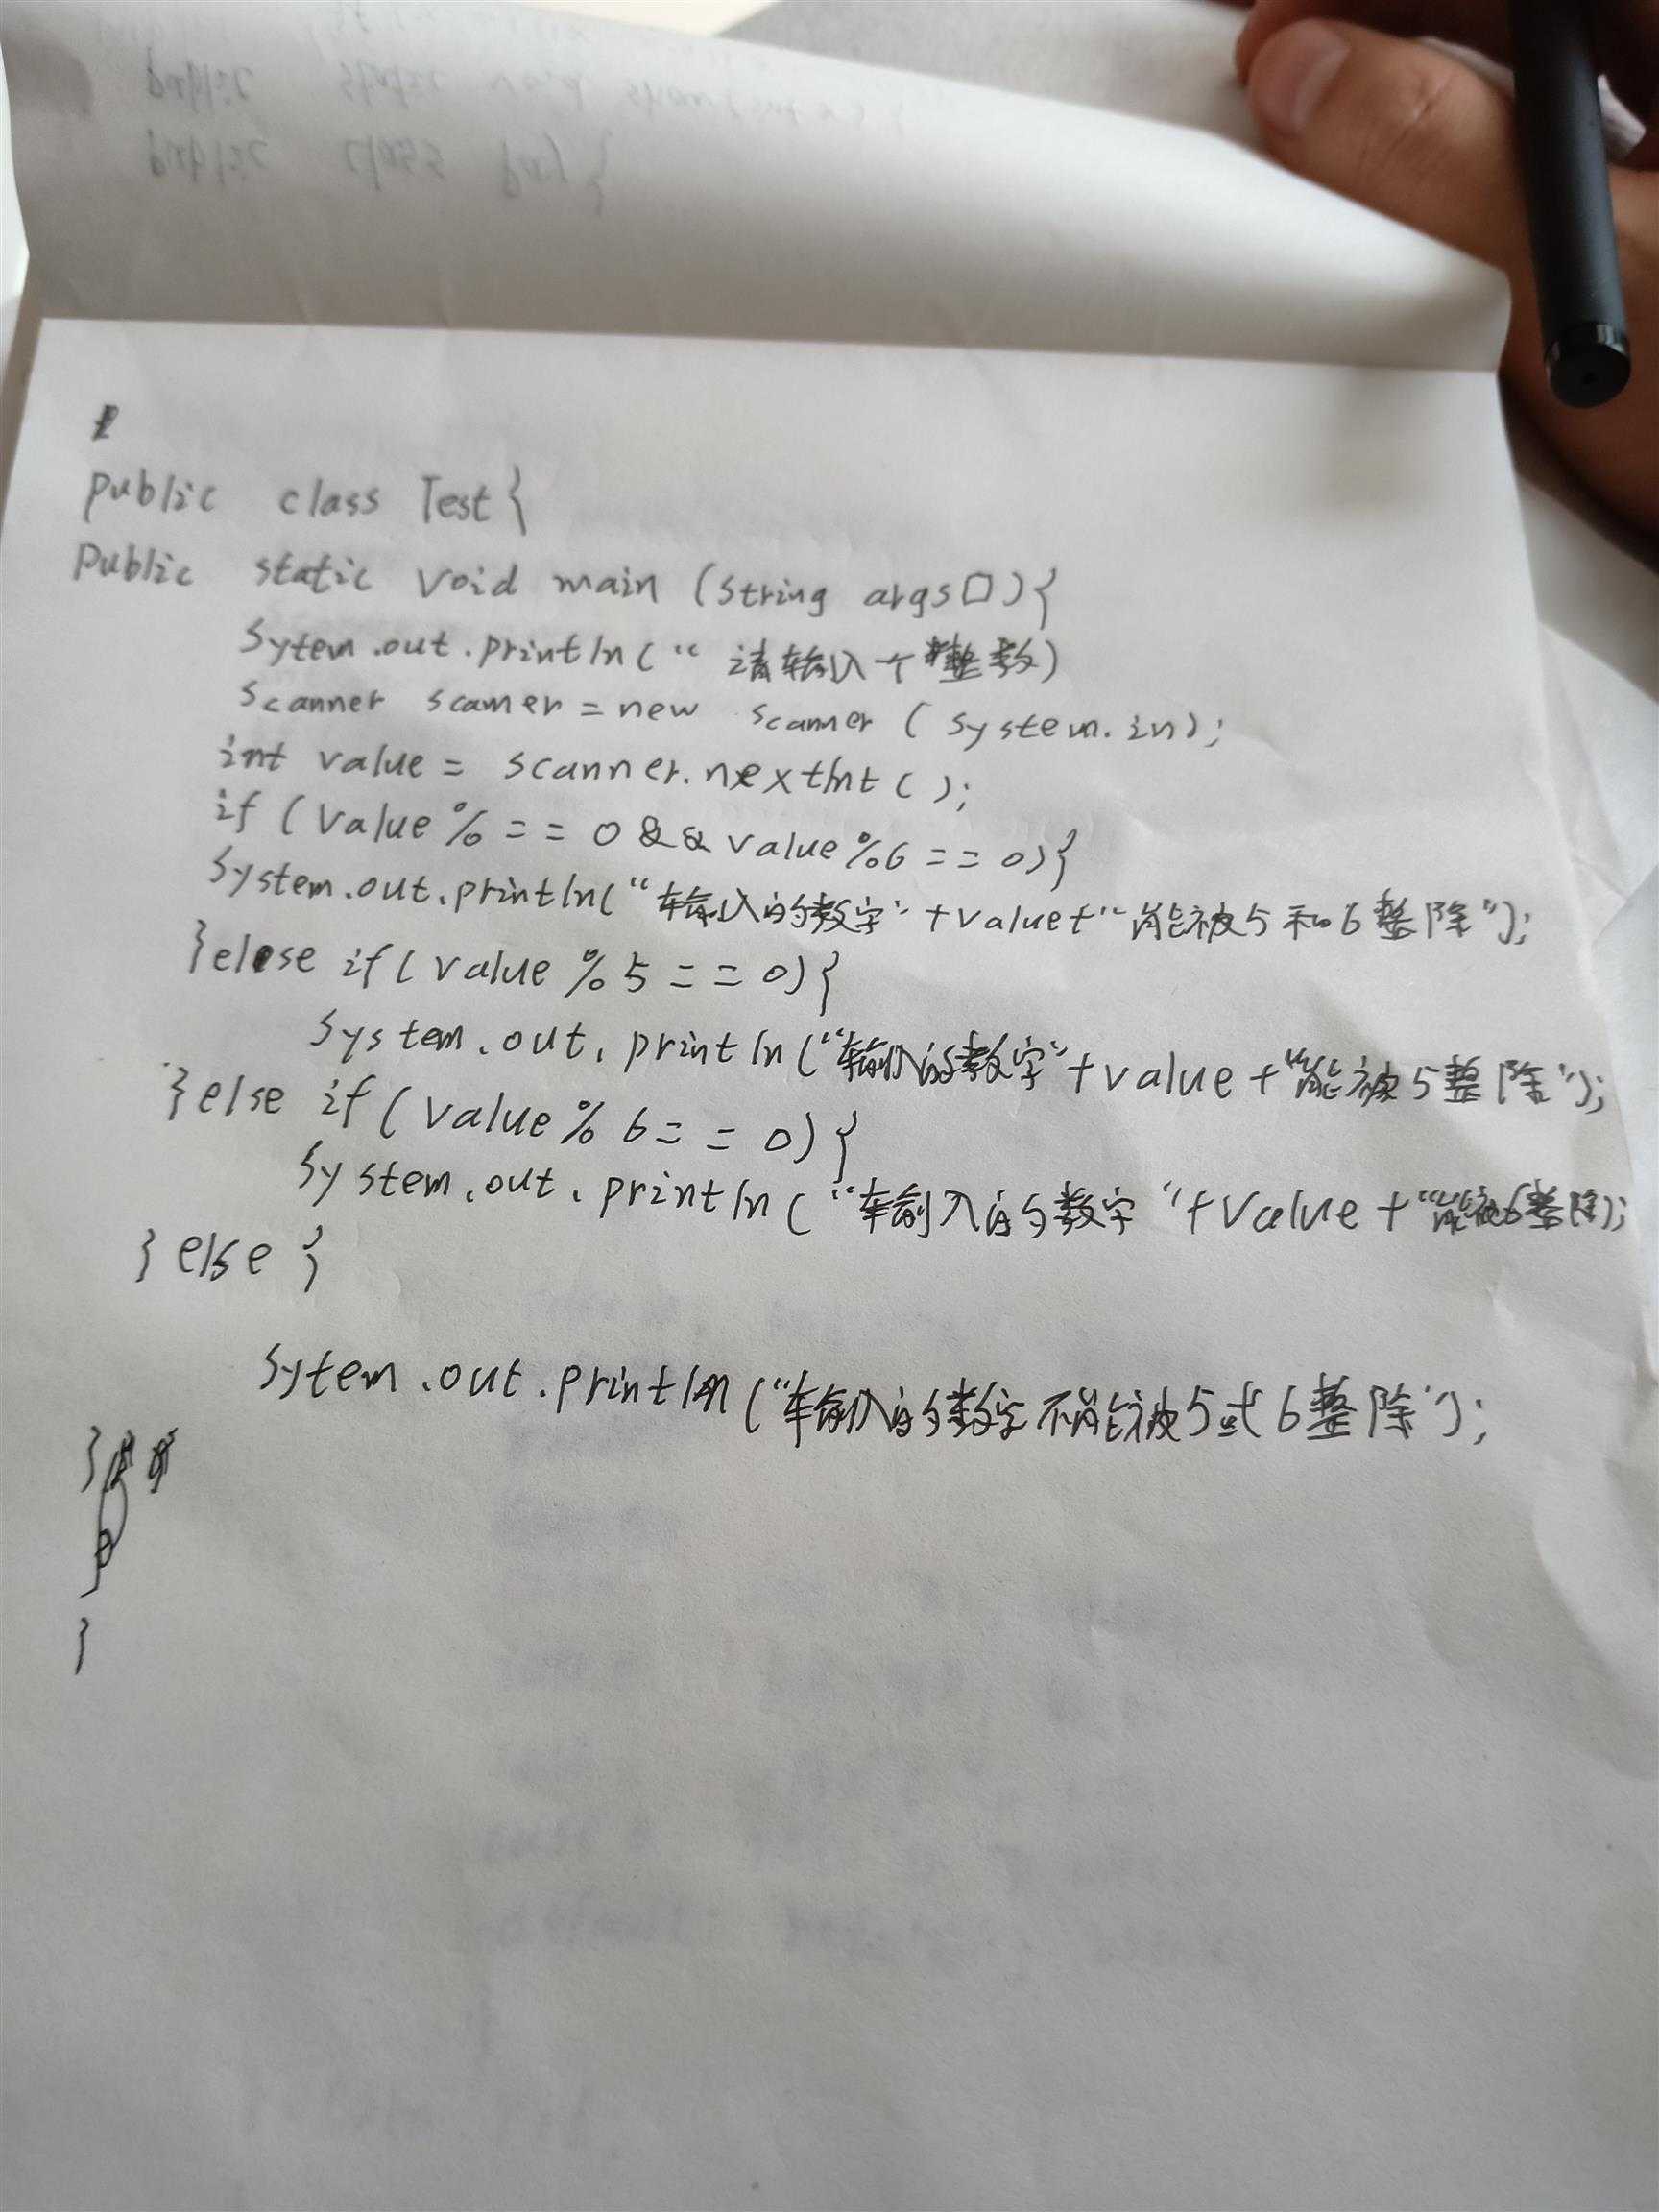 public static void
public class
public class Test{
public static void main (string args[]){
Sytem.out.println(“ 请输入个整数)
scanner scanner = new scanner ( system.in);
int value = scanner.nextInt ( );
if ( value % = = 0 && value %6 = = 0){
System.out.println(“输入的数字“ + value + “ 能被5和6整除“);
}elose if( value % 5 = = 0){
System.out.println(“输入的数字“ + value + “能被5整除“);
}else if( value % 6 = = 0){
System.out.println(“输入的数字 “ + value + “能被6整除);
} else {
Sytem.out.println(“输入的数字不能被5或6整除“);
}
}